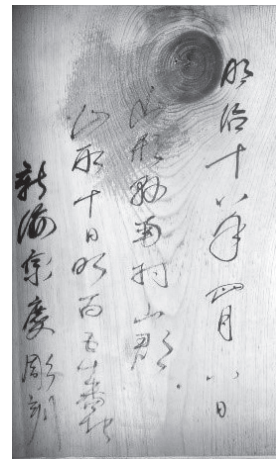 明治十八年四月八日
山形縣南村山郡
山形十日町百五十番地
新海宗慶彫刻